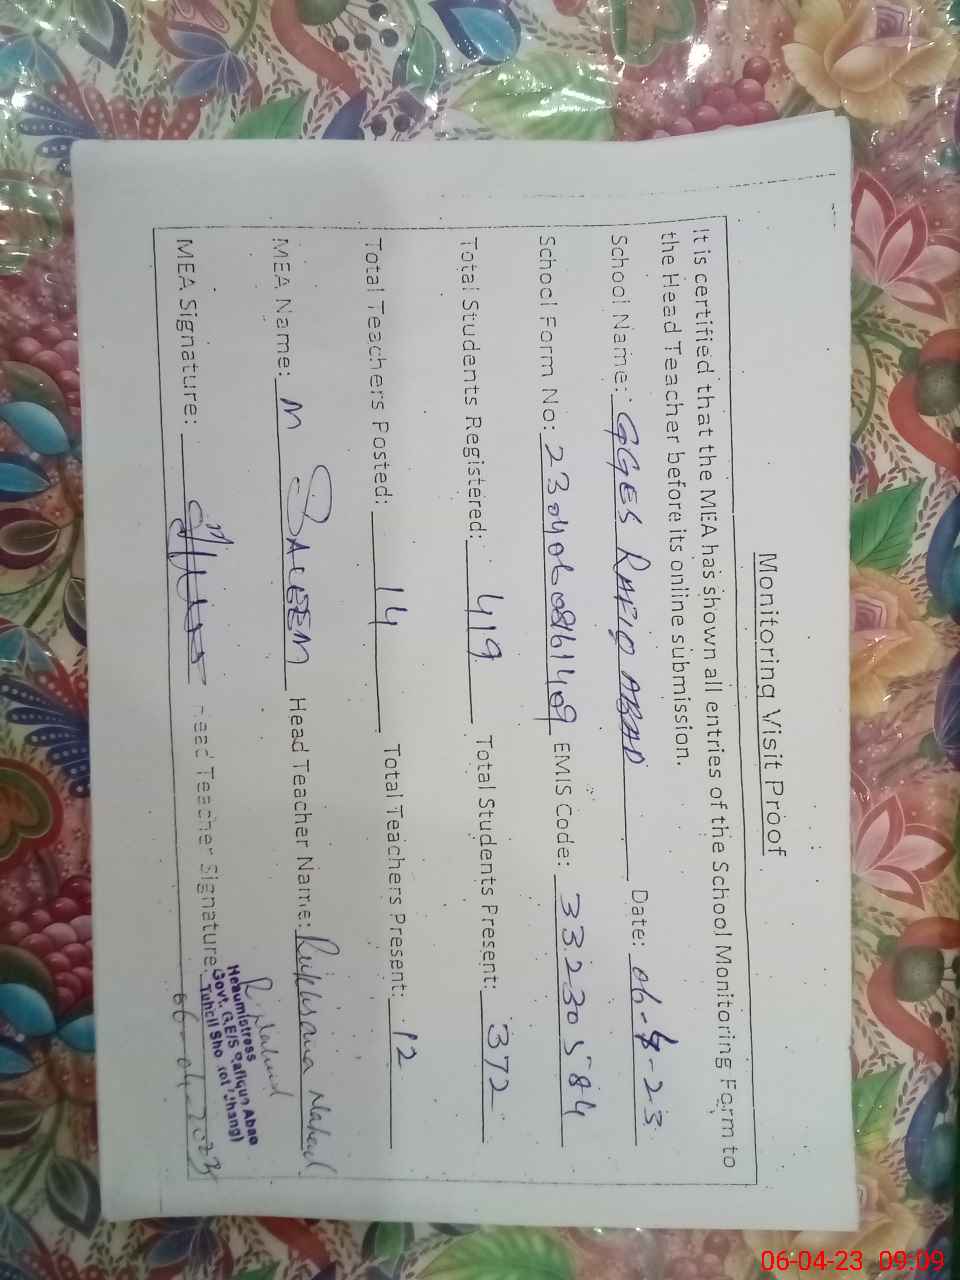 Monitoring Visit Proof
It is certified that the MEA has shown all entries of the School Monitoring Form to
the Head Teacher before its online submission.
School Name: GGES RAFIQ ABAD Date: 06-4-23
School Form No: EMIS Code: 33230584
Total Students Registered: 419 Total Students Present: 372
Total Teachers Posted: 14 Total Teachers Present: 12
MEA Name: M SALEEM Head Teacher Name:
MEA Signature: Head Teacher Signature:
Headmistress
Govt. G.E/S Rafique Abad
06-04-2023
06-04-23 09:09